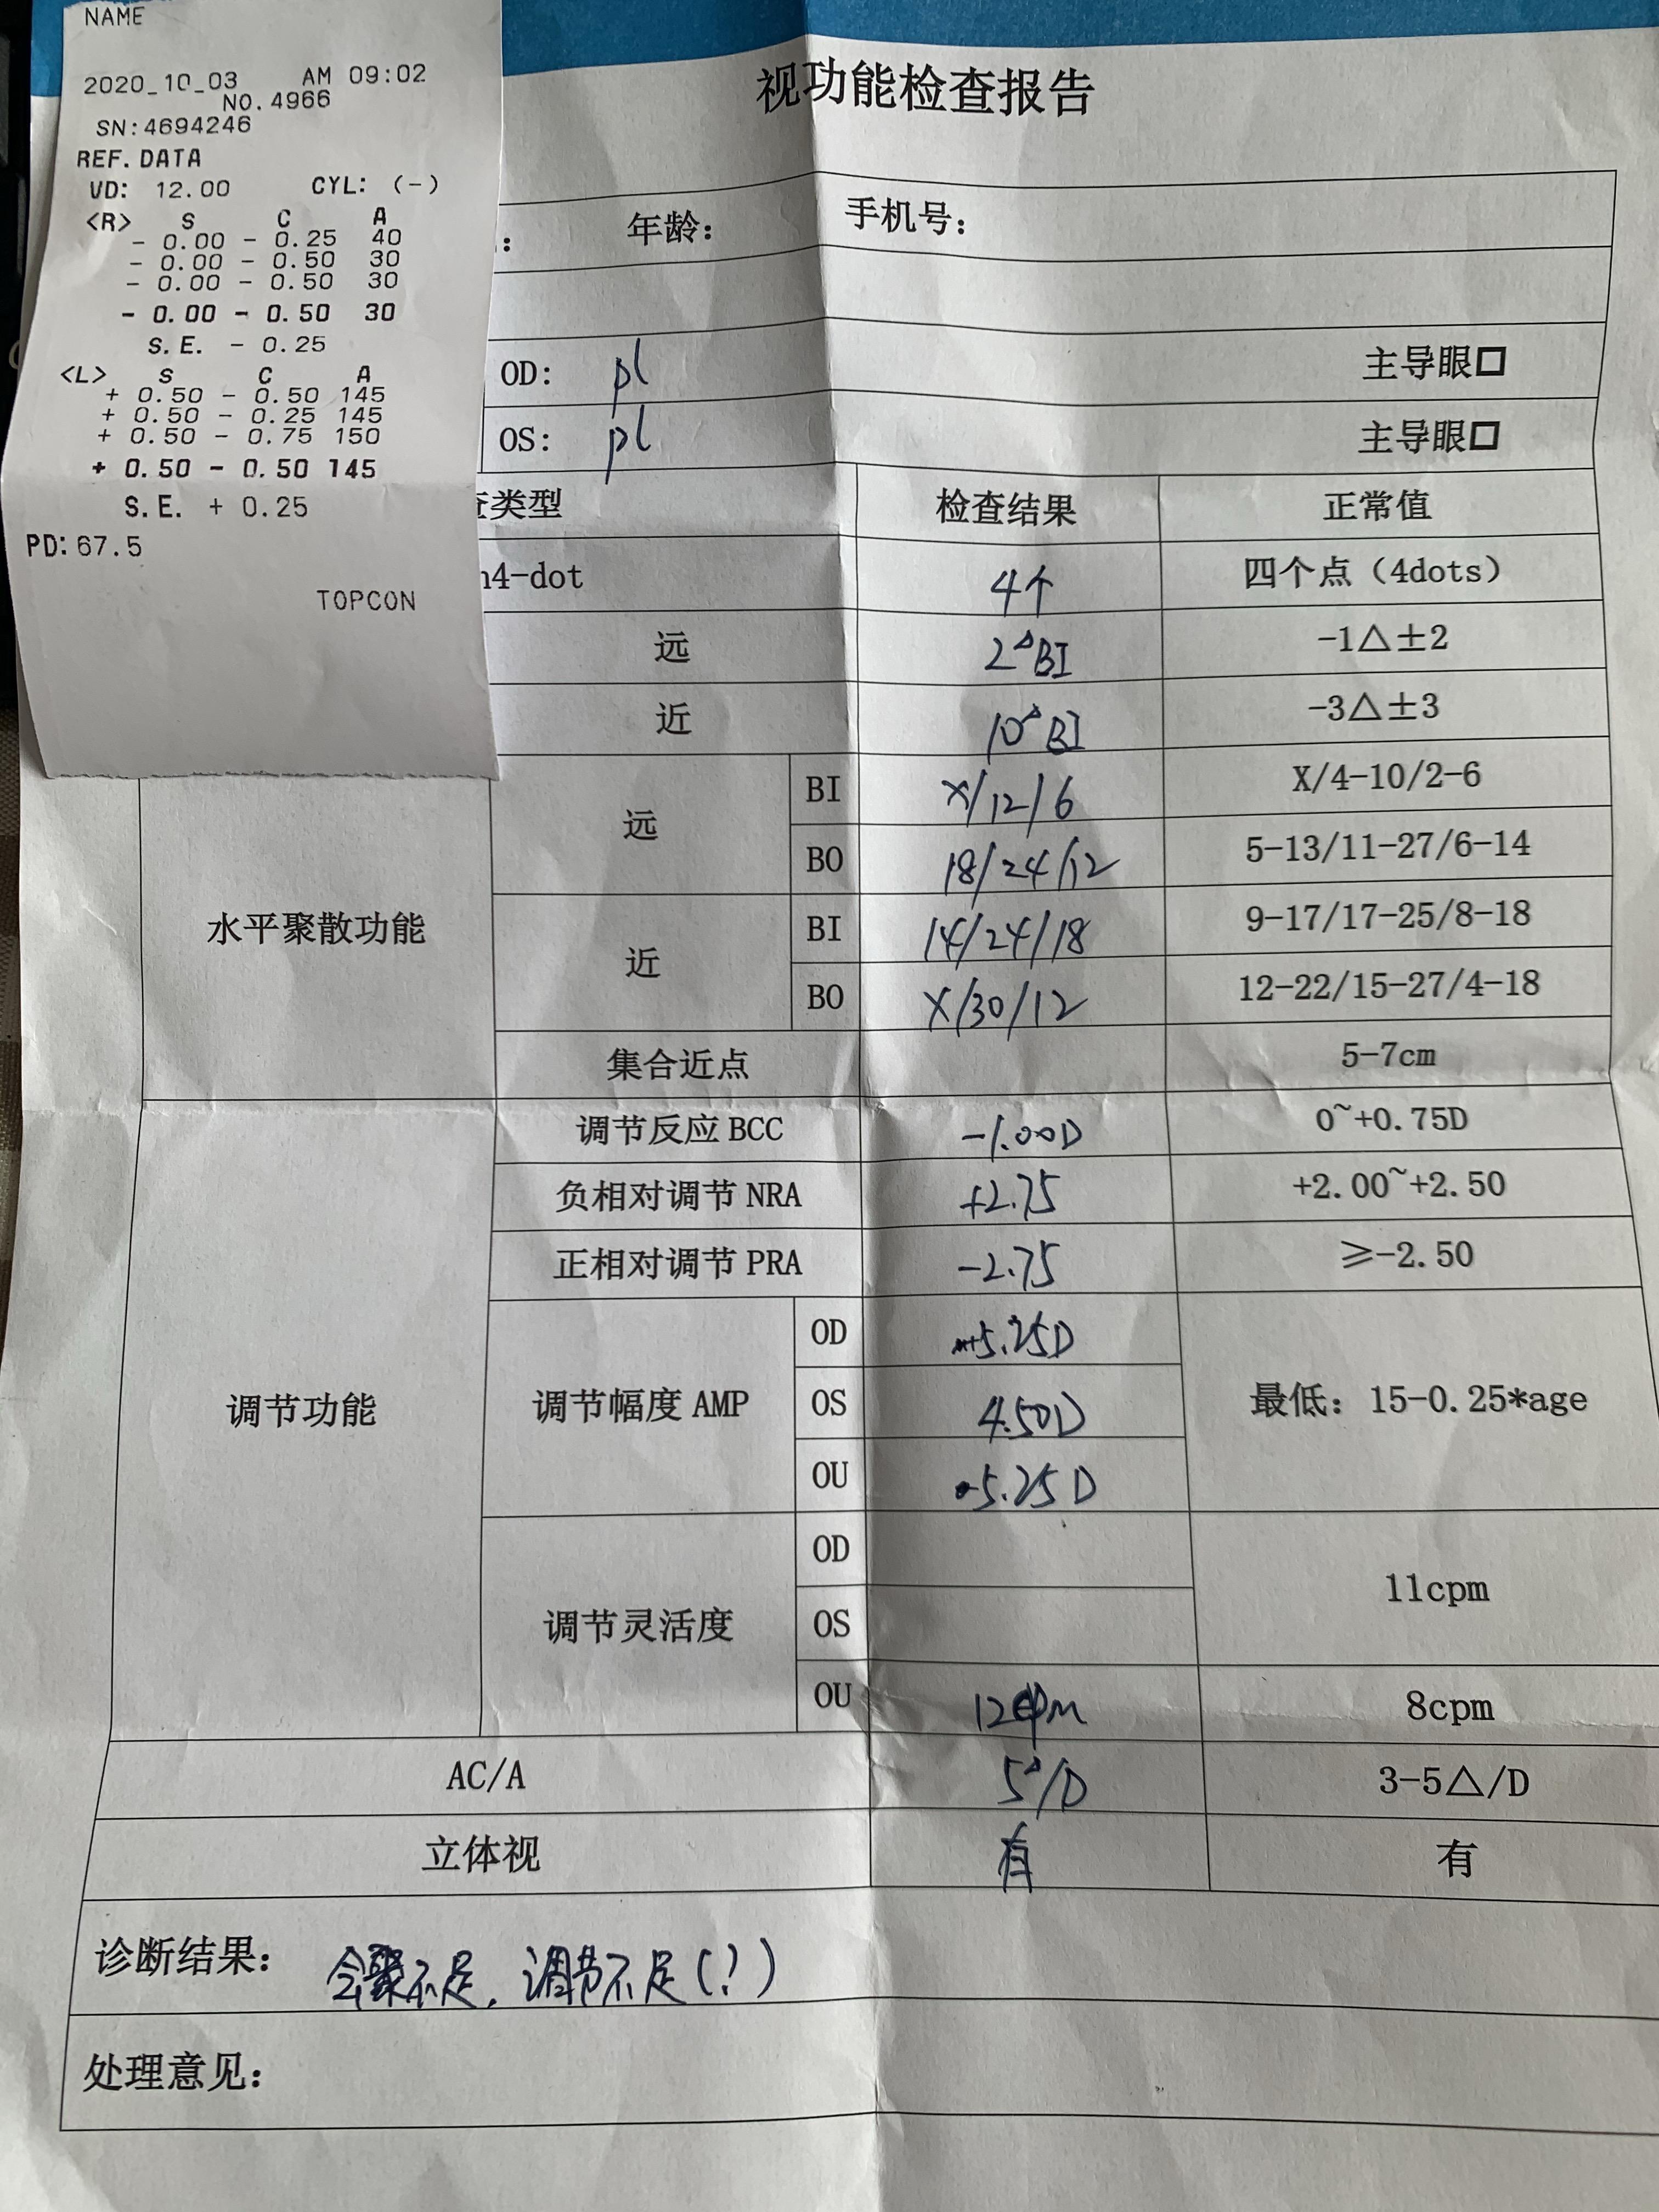 NAME
2020_10_03 AM 09:02
NO.4966
SN:4694246
REF.DATA
VD: 12.00 CYL: (-)
<R> S C A
- 0.00 - 0.25 40
- 0.00 - 0.50 30
- 0.00 - 0.50 30
- 0.00 - 0.50 30
S.E. - 0.25
<L> S C A
+ 0.50 - 0.50 145
+ 0.50 - 0.25 145
+ 0.50 - 0.75 150
+ 0.50 - 0.50 145
S.E. + 0.25
PD:67.5
TOPCON
视功能检查报告
年龄: 手机号:
OD: pl 主导眼□
OS: pl 主导眼□
类型 检查结果 正常值
4-dot 4个 四个点（4dots）
远 2△BI -1△±2
近 10△BI -3△±3
水平聚散功能
远 BI X/12/6 X/4-10/2-6
BO 18/24/12 5-13/11-27/6-14
近 BI 14/24/18 9-17/17-25/8-18
BO X/30/12 12-22/15-27/4-18
集合近点 5-7cm
调节功能
调节反应 BCC -1.00D 0~+0.75D
负相对调节 NRA +2.75 +2.00~+2.50
正相对调节 PRA -2.75 ≥-2.50
调节幅度 AMP OD 5.25D 最低: 15-0.25*age
OS 4.50D
OU 5.25D
调节灵活度 OD 11cpm
OS
OU 12cpm 8cpm
AC/A 5△/D 3-5△/D
立体视 有 有
诊断结果: 会聚不足, 调节不足(?)
处理意见: